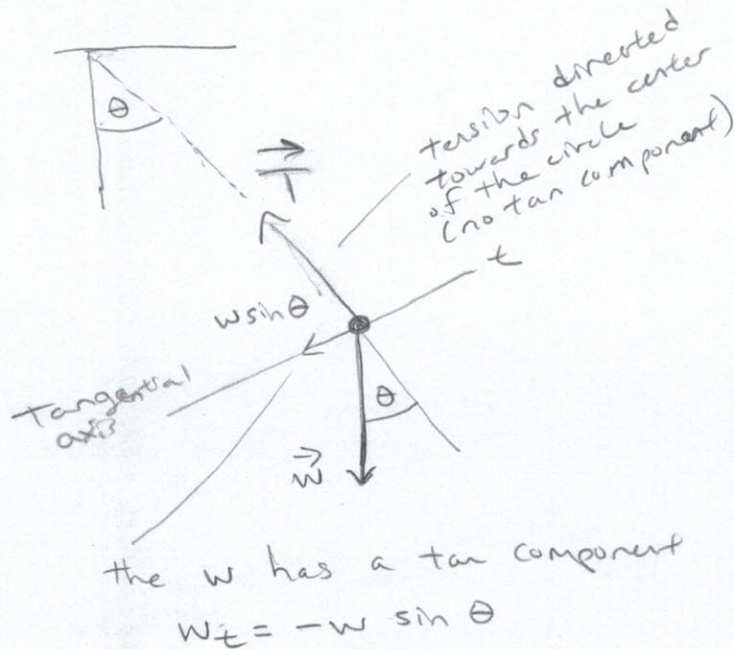 θ
T
tension directed
towards the center
of the circle
(no tan component)
t
w sin θ
Tangential
axis
θ
w
the w has a tan component
w_t = -w sin θ